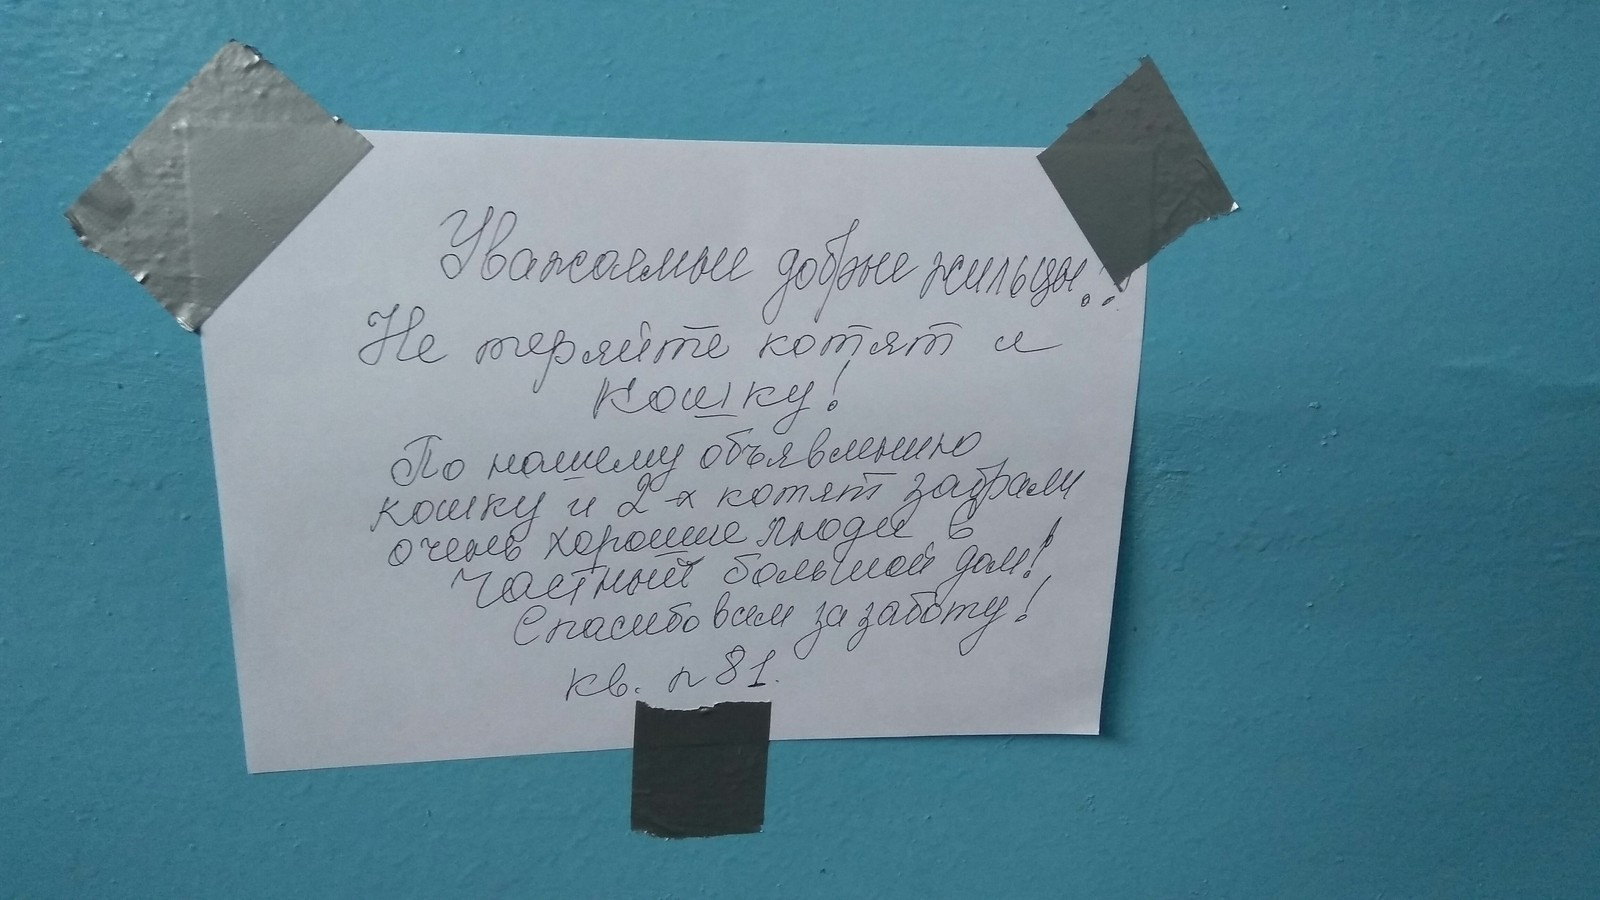 Уважаемые добрые жильцы!!
Не теряйте котят и
кошку!
По нашему объявлению
кошку и 2-х котят забрали
очень хорошие люди в
частный большой дом!
Спасибо вам за заботу!
кв. n 81.